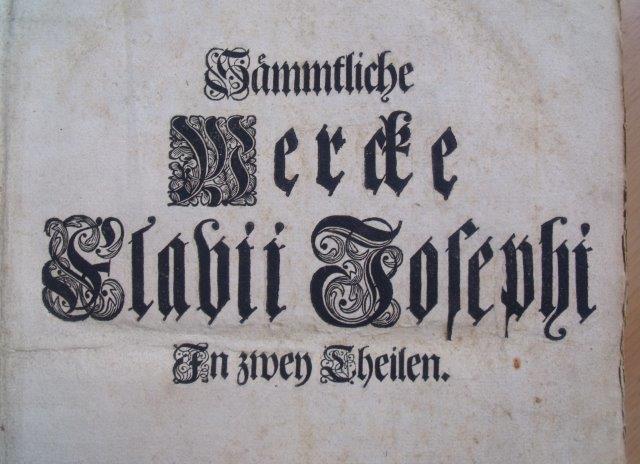 Sämmtliche
Wercke
Flavii Josephi
In zwey Theilen.